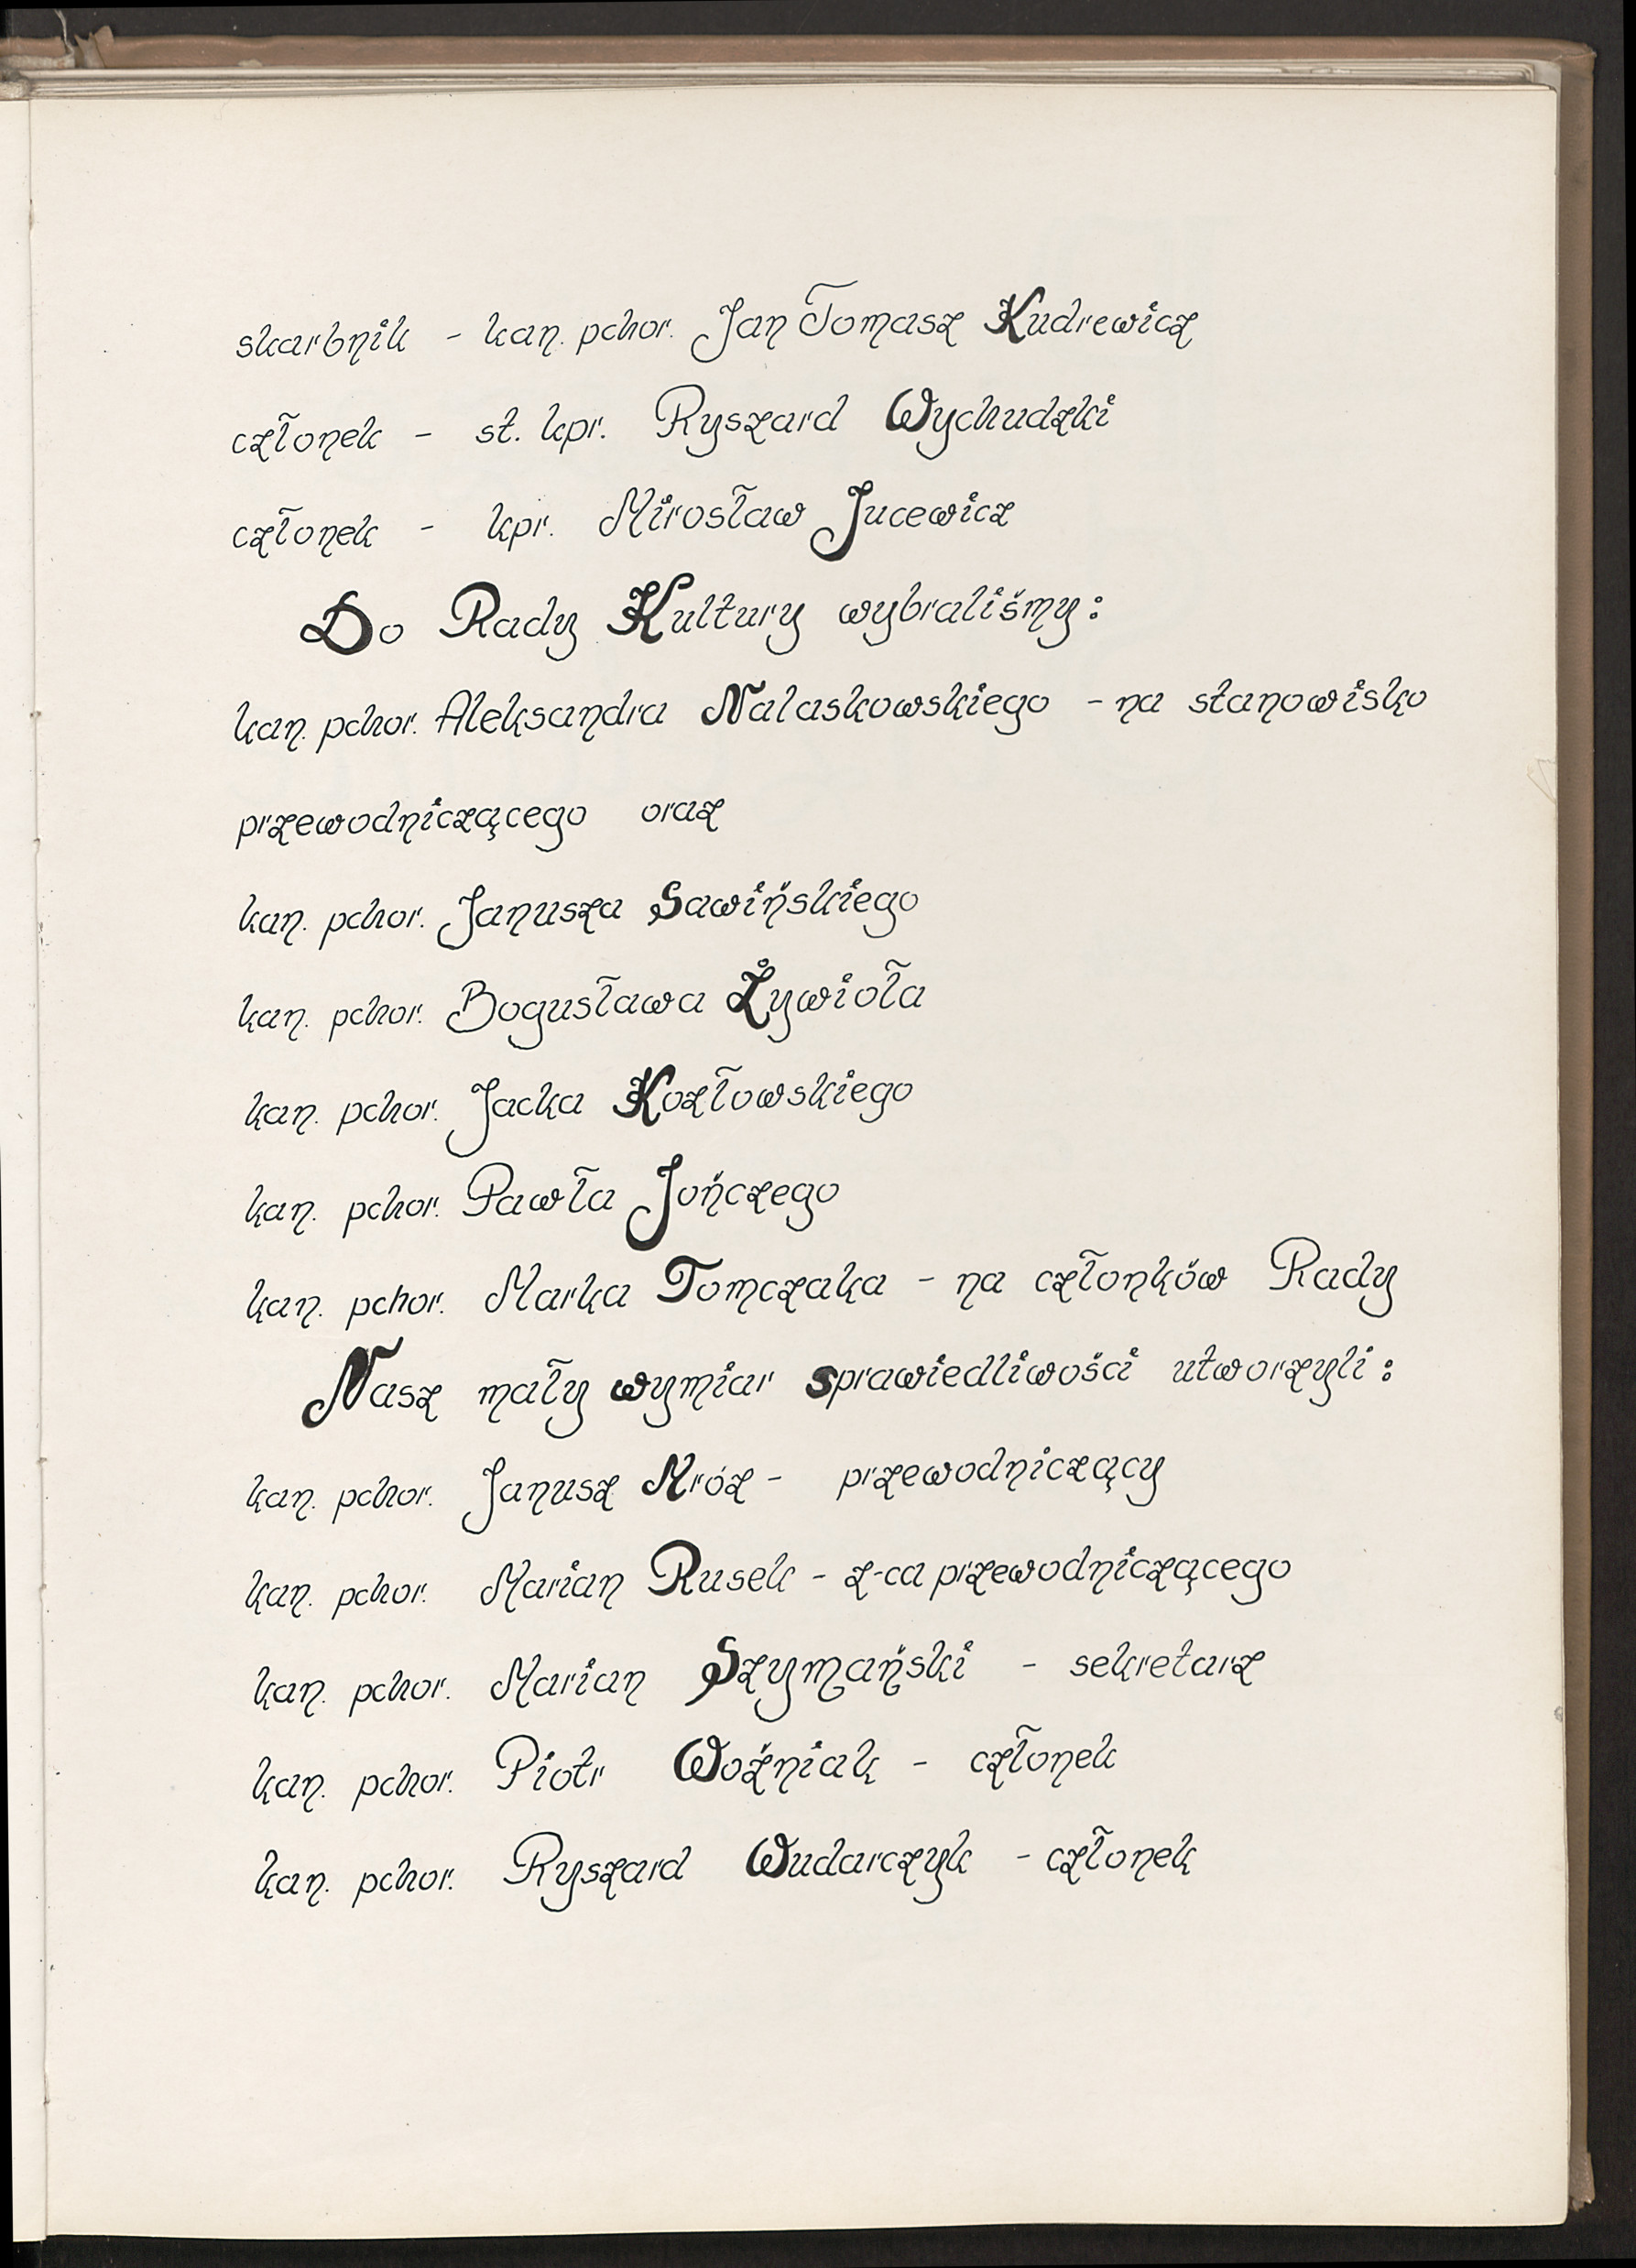 skarbnik - kan. pchor. Jan Tomasz Kudrewicz
członek - st. kpr. Ryszard Wychudzki
członek - kpr. Mirosław Jucewicz
Do Rady Kultury wybraliśmy:
kan. pchor. Aleksandra Nalaskowskiego - na stanowisko
przewodniczącego oraz
kan. pchor. Janusza Sawińskiego
kan. pchor. Bogusława Żywioła
kan. pchor. Jacka Kozłowskiego
kan. pchor. Pawła Jończego
kan. pchor. Marka Tomczaka - na członków Rady
Nasz mały wymiar sprawiedliwości utworzyli:
kan. pchor. Janusz Mróz - przewodniczący
kan. pchor. Marian Rusek - z-ca przewodniczącego
kan. pchor. Marian Szymański - sekretarz
kan. pchor. Piotr Woźniak - członek
kan. pchor. Ryszard Wudarczyk - członek